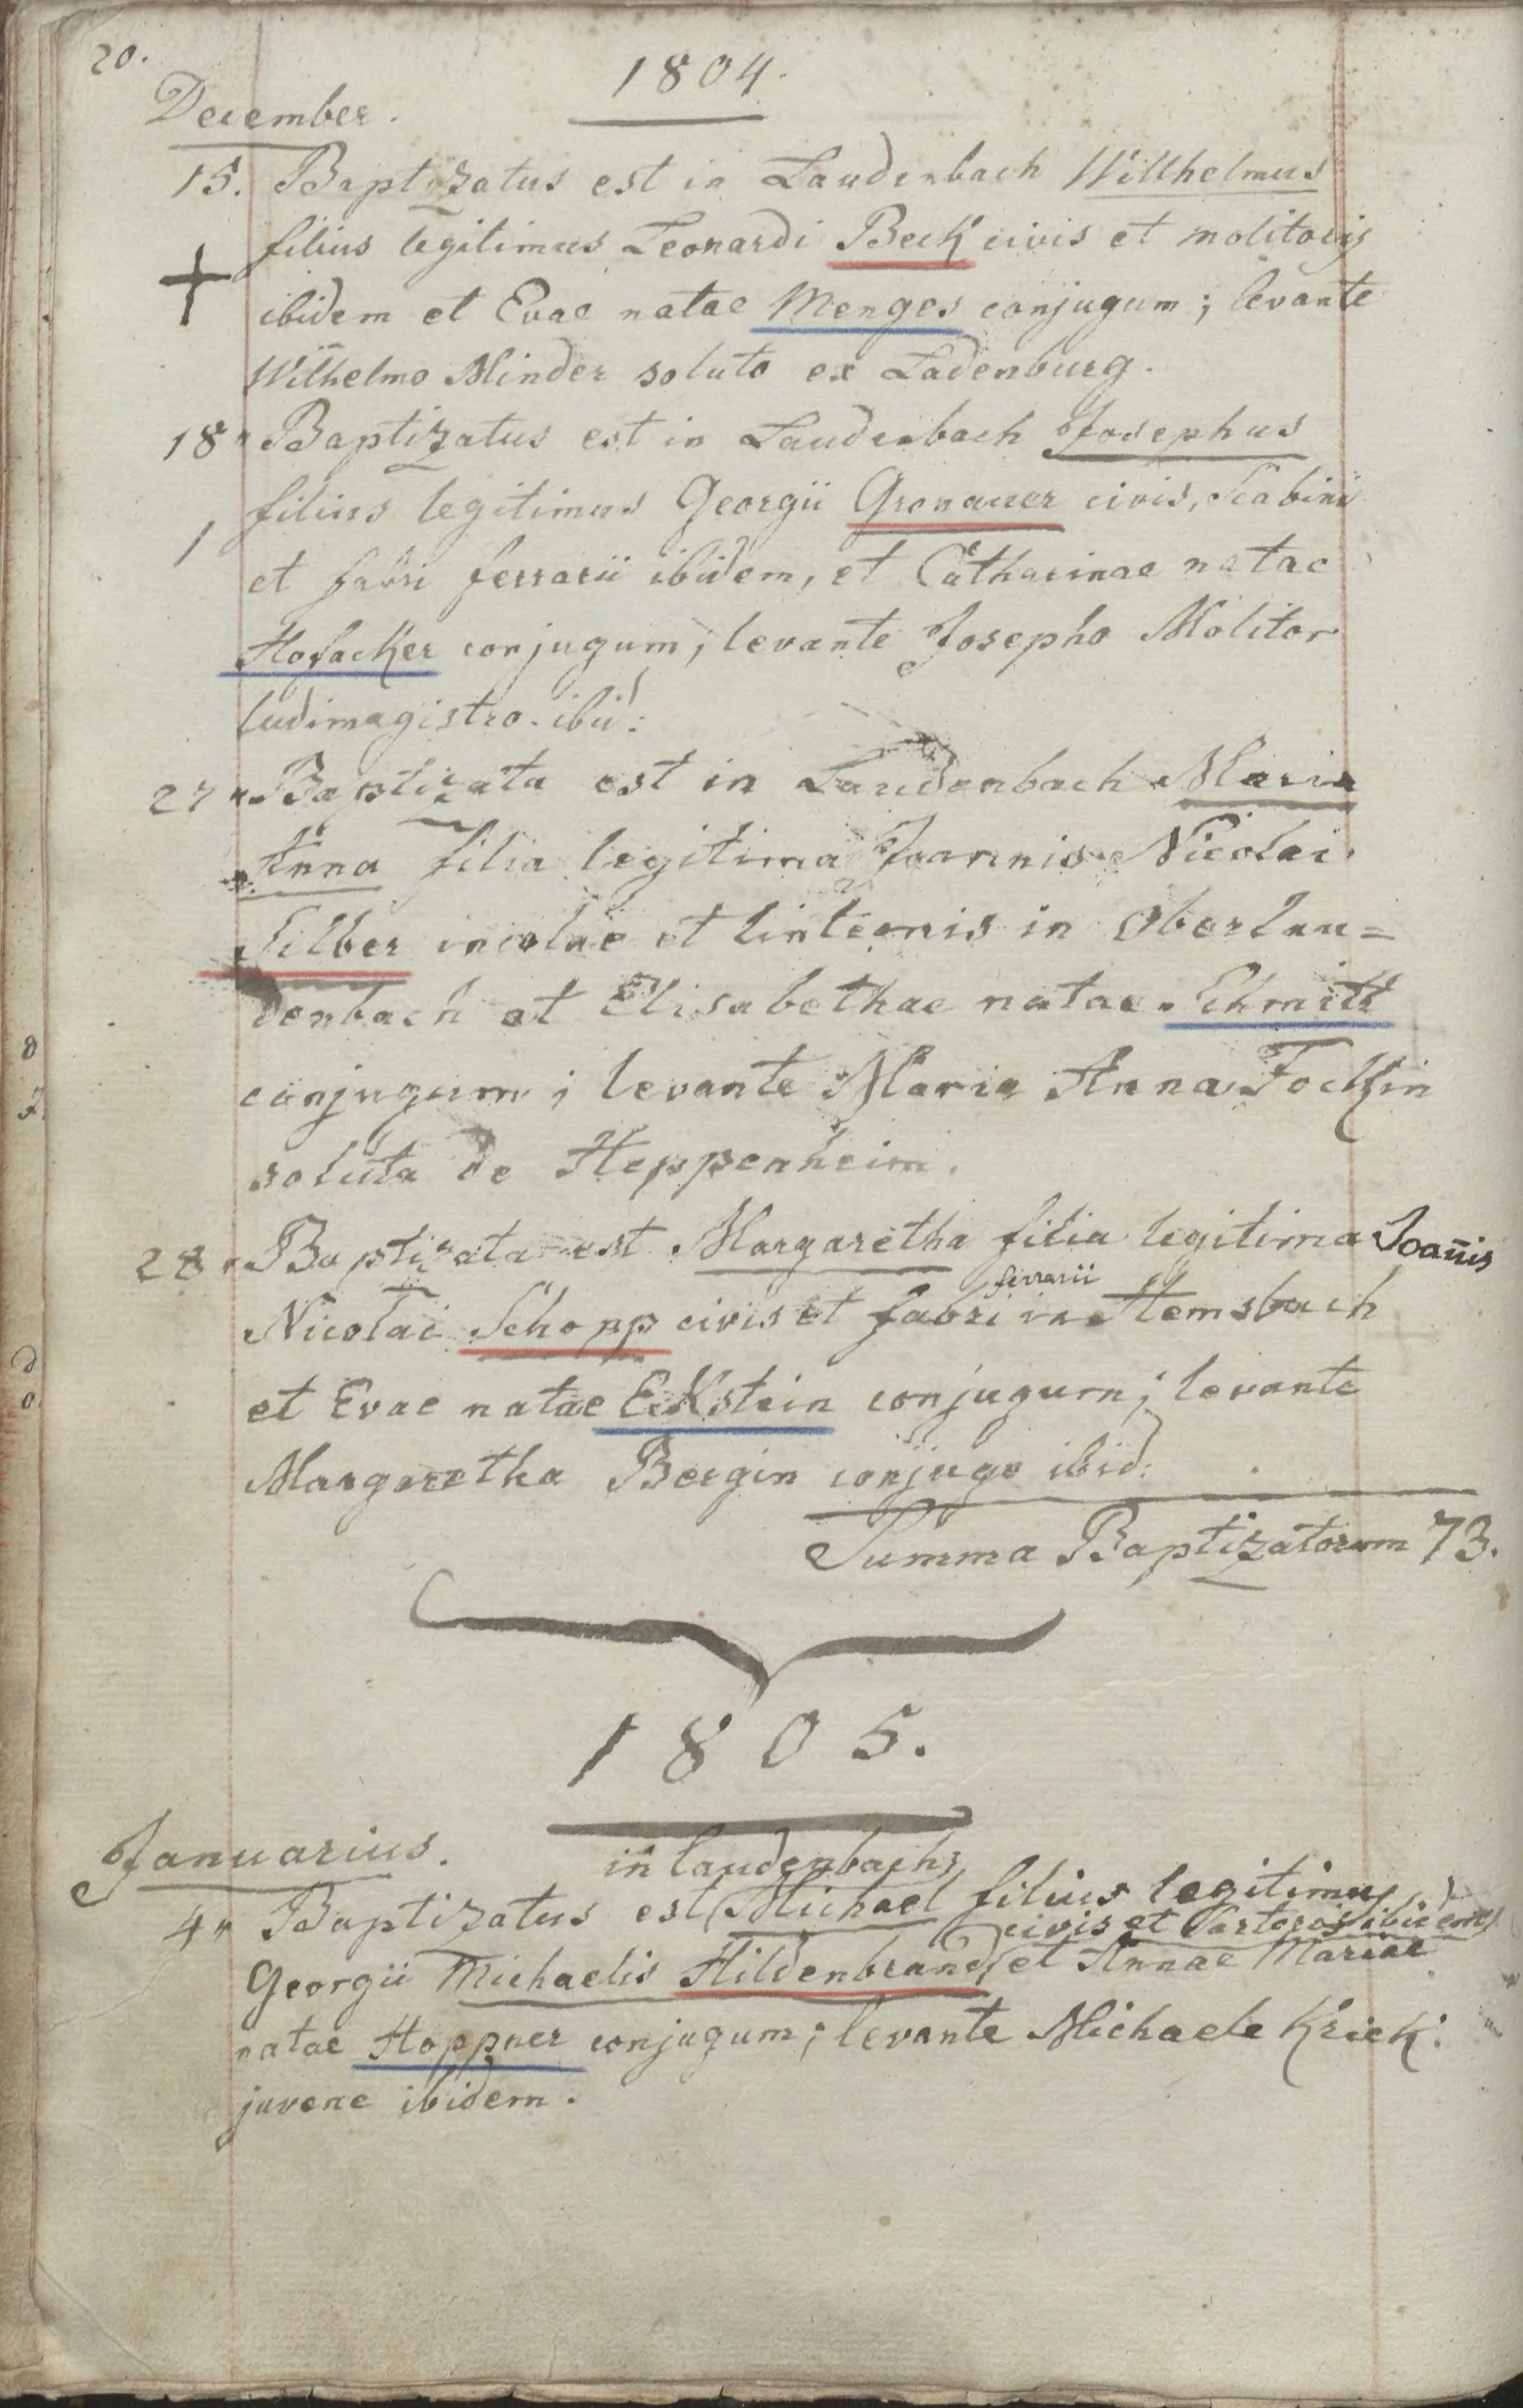 20.
1804.
December.
15. Baptizatus est in Laudenbach Wilhelmus
filius legitimus Leonardi Beck civis et molitoris
ibidem et Evae natae Menges conjugum; levante
Wilhelmo Minder soluto ex Ladenburg.
18" Baptizatus est in Laudenbach Josephus
filius legitimus Georgii Gronauer civis, Scabini
et fabri ferrarii ibidem, et Catharinae natae
Hofacker conjugum; levante Josepho Molitor
ludimagistro ibid:
27" Baptizata est in Laudenbach Maria
Anna filia legitima Joannis Nicolai
Silber incolae et linteonis in Oberlau=
denbach et Elisabethae natae Schmitt
conjugum; levante Maria Anna Fockin
soluta de Heppenheim.
28" Baptizata est Margaretha filia legitima Joan̄is
ferrarii
Nicolai Schopp civis et fabri in Hemsbach
et Evae natae Eckstein conjugum; levante
Margaretha Bergin conjuge ibid:
Summa Baptizatorum 73.
1805.
Januarius.
in Laudenbach
4" Baptizatus est Michael filius legitimus
civis et Sartoris ibidem
Georgii Michaelis Hildenbrand et Annae Mariae
natae Hoppner conjugum; levante Michaele Kriek
juvene ibidem.